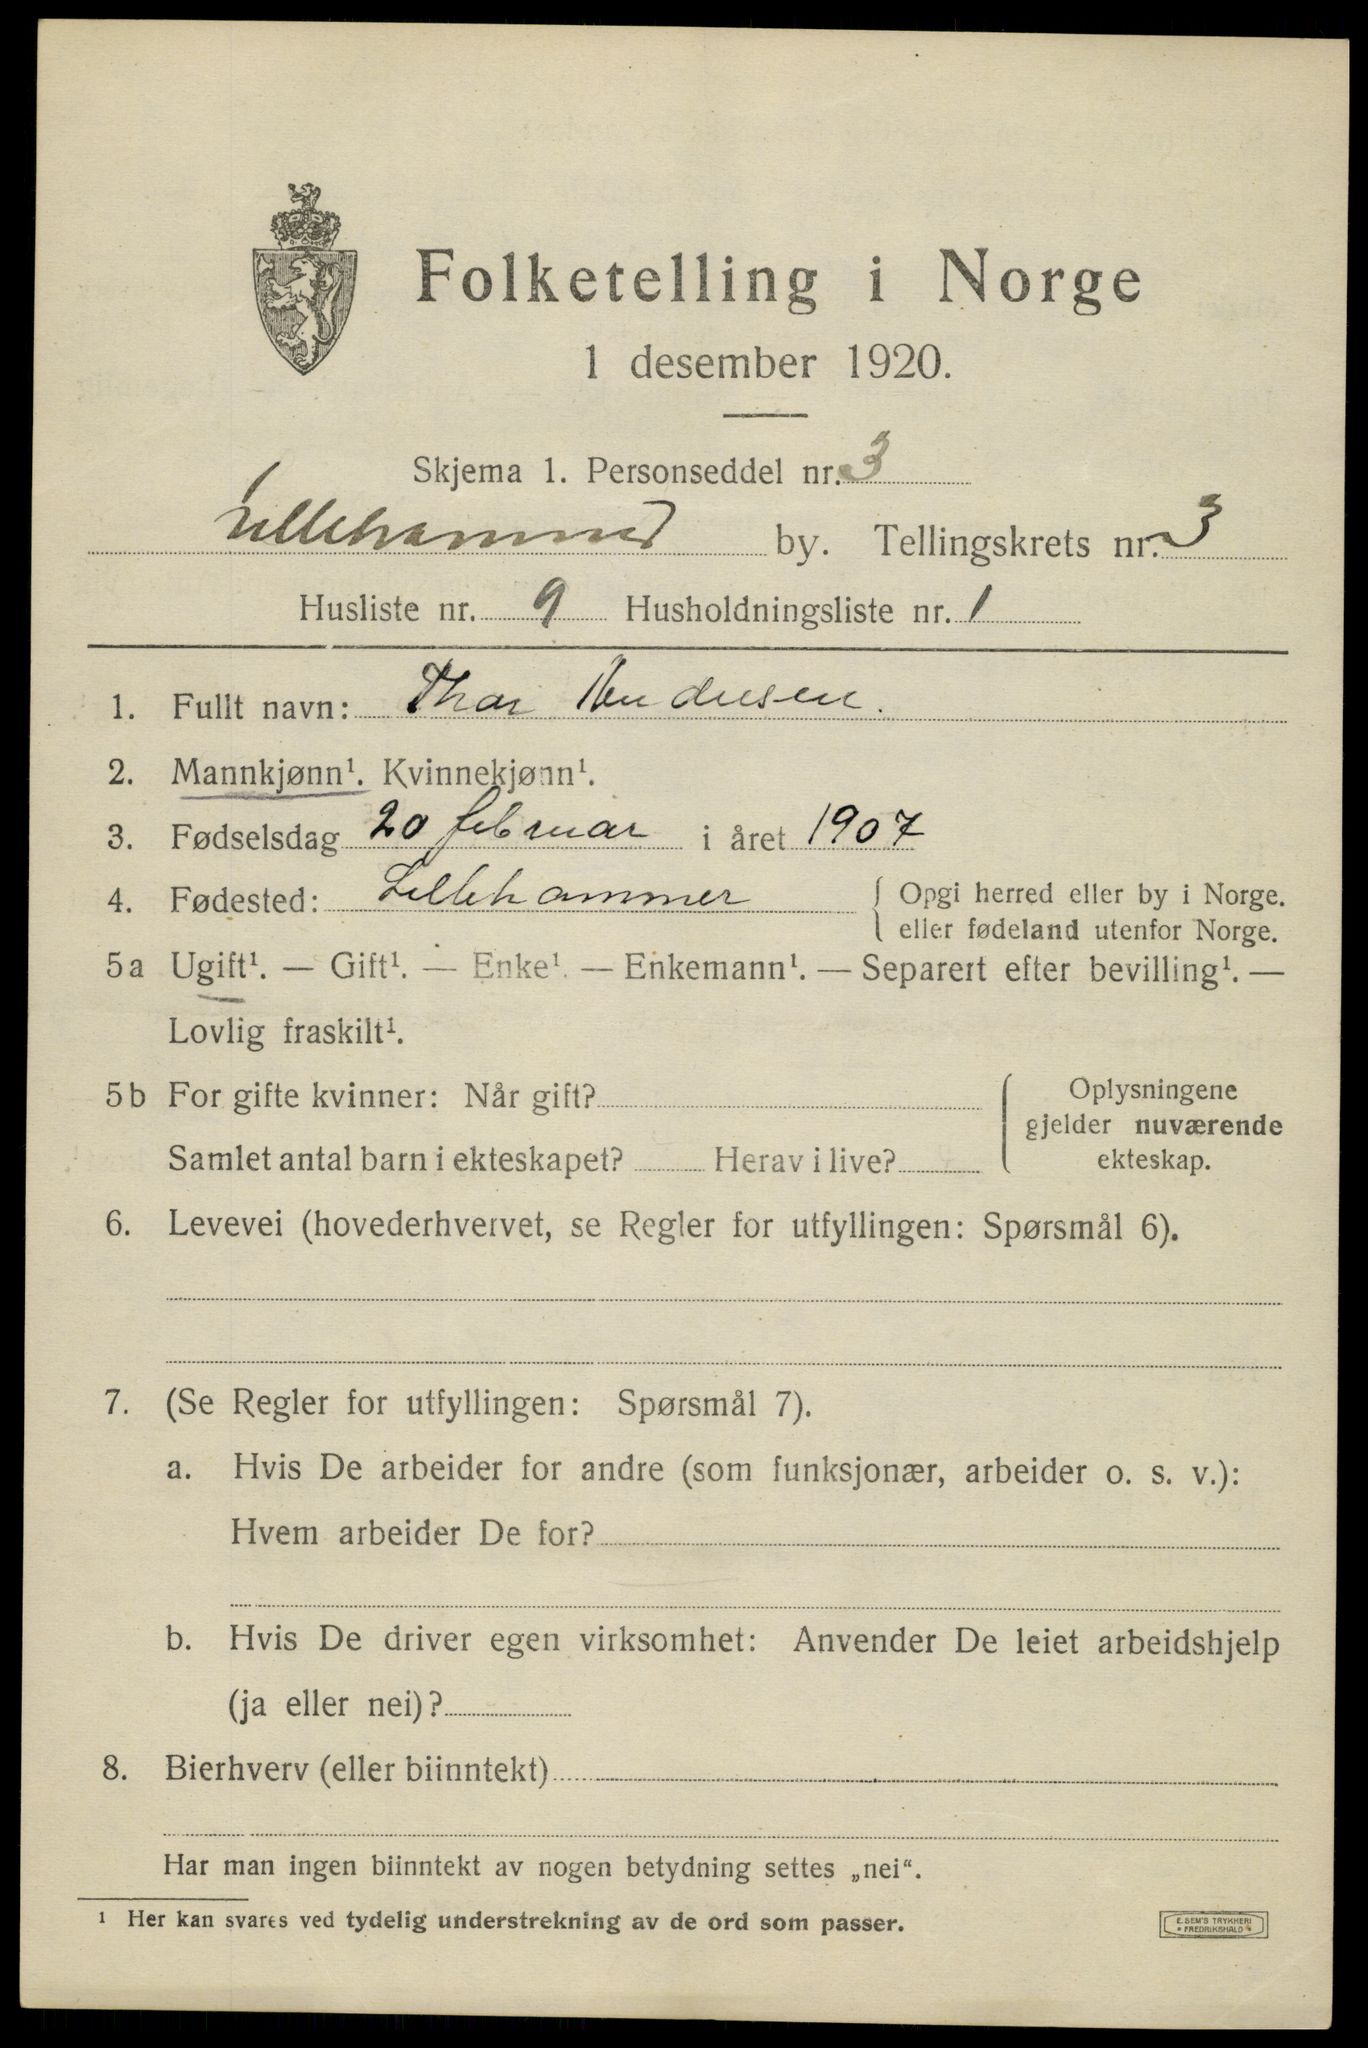 Folketelling i Norge
1 desember 1920.
Skjema 1. Personseddel nr. 3
Lillehammer by. Tellingskrets nr. 3
Husliste nr. 9 Husholdningsliste nr. 1
1. Fullt navn: Thor
2. Mannkjønn¹. Kvinnekjønn¹.
3. Fødselsdag 20 februar i året 1907
4. Fødested: Lillehammer { Opgi herred eller by i Norge.
eller fødeland utenfor Norge.
5a Ugift¹. — Gift¹. — Enke¹. — Enkemann¹. — Separert efter bevilling¹. —
Lovlig fraskilt¹.
5b For gifte kvinner: Når gift?
Samlet antal barn i ekteskapet? Herav i live?
Oplysningene
gjelder nuværende
ekteskap.
6. Levevei (hovederhvervet, se Regler for utfyllingen: Spørsmål 6).
7. (Se Regler for utfyllingen: Spørsmål 7).
a. Hvis De arbeider for andre (som funksjonær, arbeider o. s. v.):
Hvem arbeider De for?
b. Hvis De driver egen virksomhet: Anvender De leiet arbeidshjelp
(ja eller nei)?
8. Bierhverv (eller biinntekt)
Har man ingen biinntekt av nogen betydning settes „nei“.
¹ Her kan svares ved tydelig understrekning av de ord som passer.
E. SEM'S TRYKKERI
FREDRIKSHALD